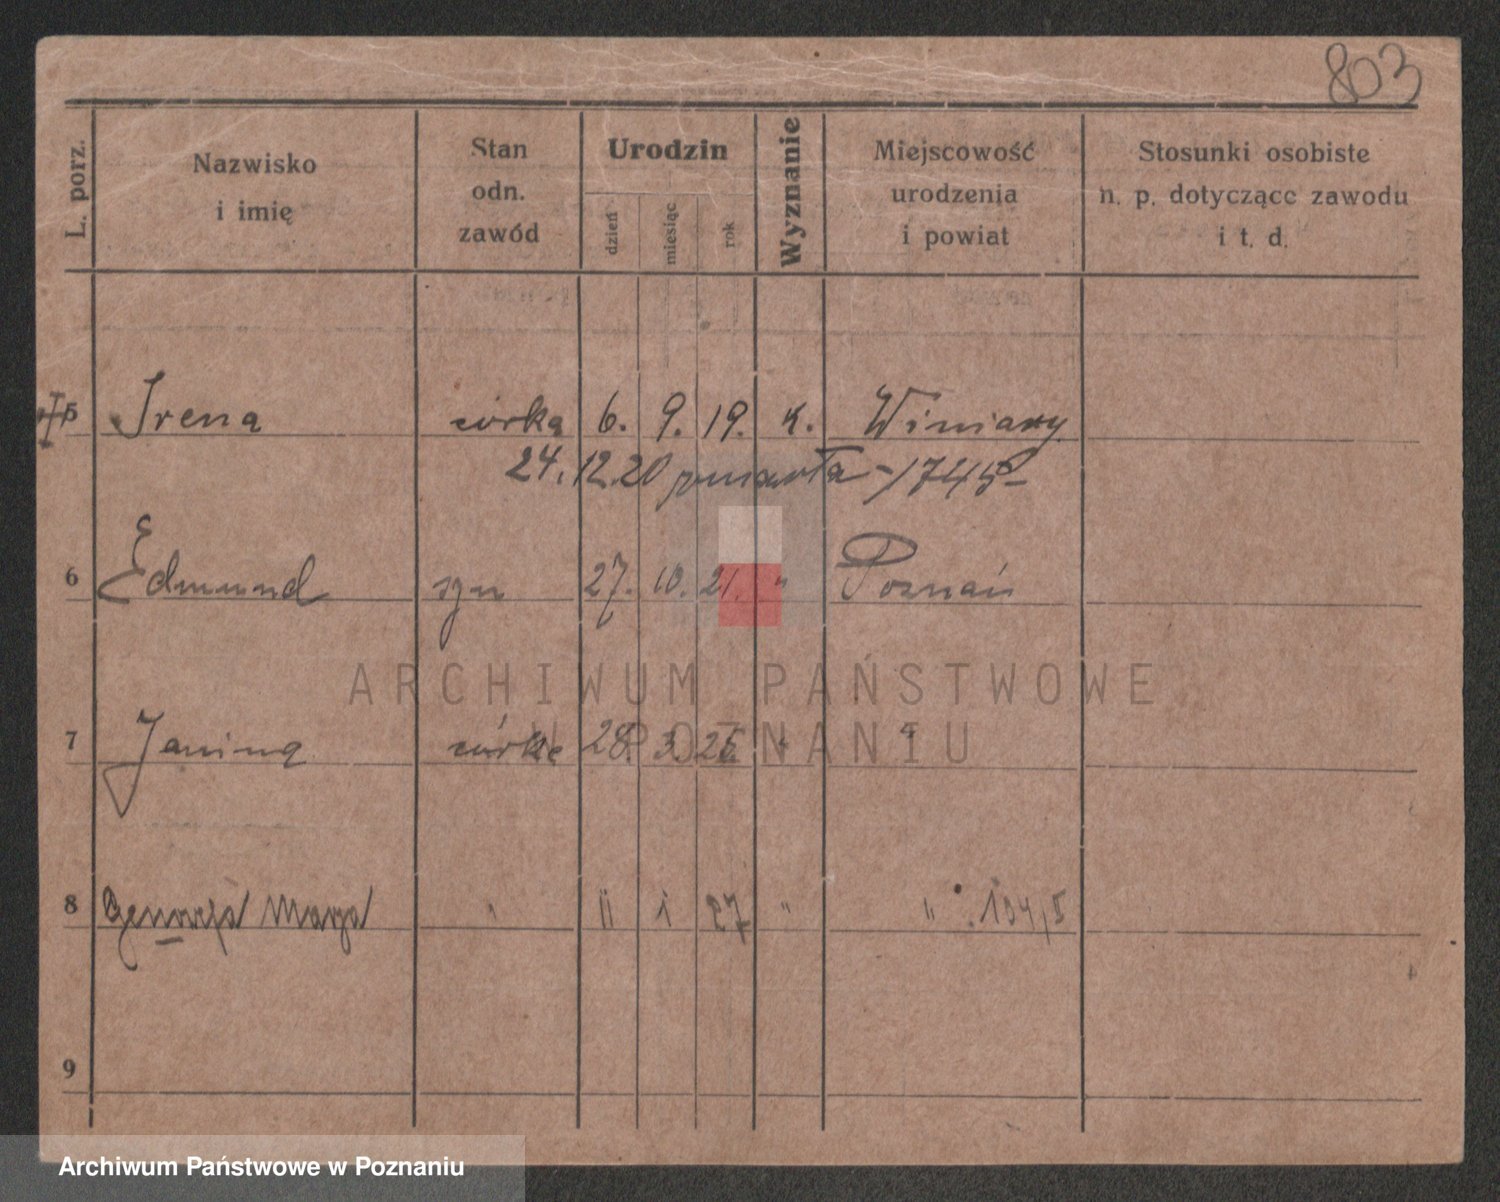 803
L. porz.
Nazwisko
i imię
Stan
odn.
zawód
Urodzin
dzień
miesiąc
rok
Wyznanie
Miejscowość
urodzenia
i powiat
Stosunki osobiste
n. p. dotyczące zawodu
i t. d.
5 Irena córka 6. 9. 19. k. Winiary
24.12.20 zmarła -1745-
6 Edmund syn 27. 10. 21. " Poznań
ARCHIWUM PAŃSTWOWE
W POZNANIU
7 Janina córka 28. 3. 25 " "
8 Marya " 11 1 27 " " 134/5
9
Archiwum Państwowe w Poznaniu